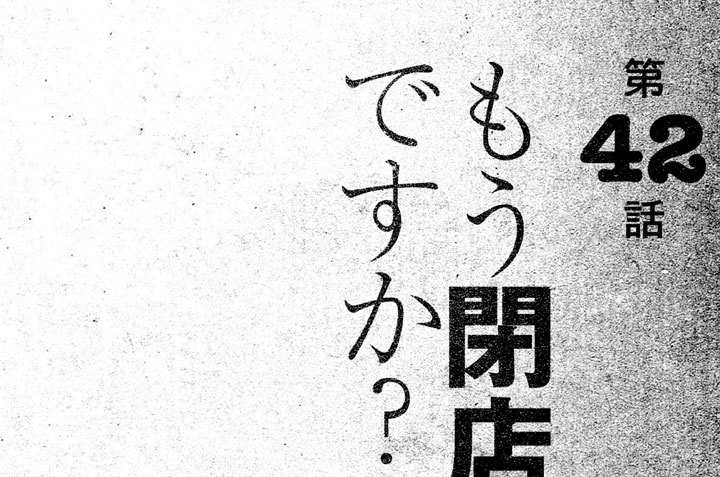 第42話
もう閉店
ですか?